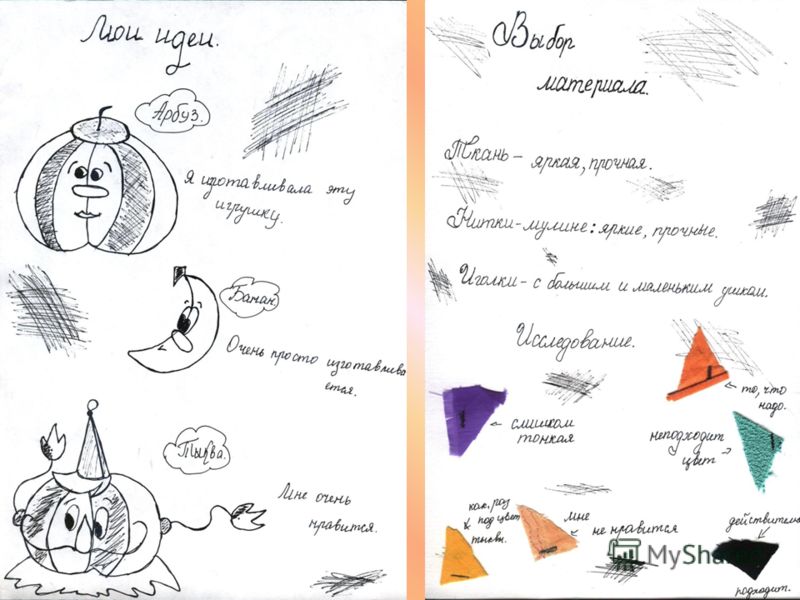 Мои идеи.
Арбуз.
Я изготавливала эту
игрушку.
Банан
Очень просто изготавлива
ется.
Тыква.
Мне очень
нравится.
Выбор
материала.
Ткань - яркая, прочная.
Нитки-мулине: яркие, прочные.
Иголки - с большим и маленьким ушком.
Исследование.
то, что
надо.
слишком
тонкая
неподходит
цвет
как раз
под цвет
тыквы.
мне
не нравится
действительно
подходит.
MyShared